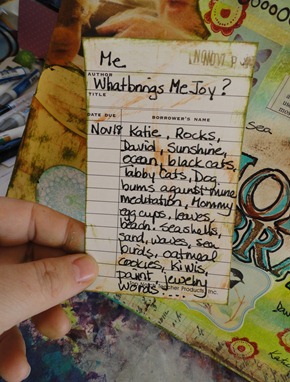 Me.
NOV 18
AUTHOR
What brings Me Joy?
TITLE
DATE DUE BORROWER'S NAME
Nov 18 Katie, Rocks,
David, Sunshine,
ocean, black cats,
tabby cats, Dog
bums against mine
meditation, Mommy
egg cups, leaves,
beach, seashells,
sand, waves, sea
birds, oatmeal
cookies, Kiwis,
paint, jewelry
words.....
Products, Inc.
sea